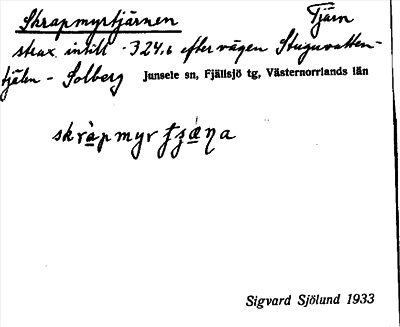 Skrapmyrtjärnen Tjärn
strax intill ·324.6 efter vägen Stuguvatten-
fjälen - Solberg Junsele sn, Fjällsjö tg, Västernorrlands län
Sigvard Sjölund 1933